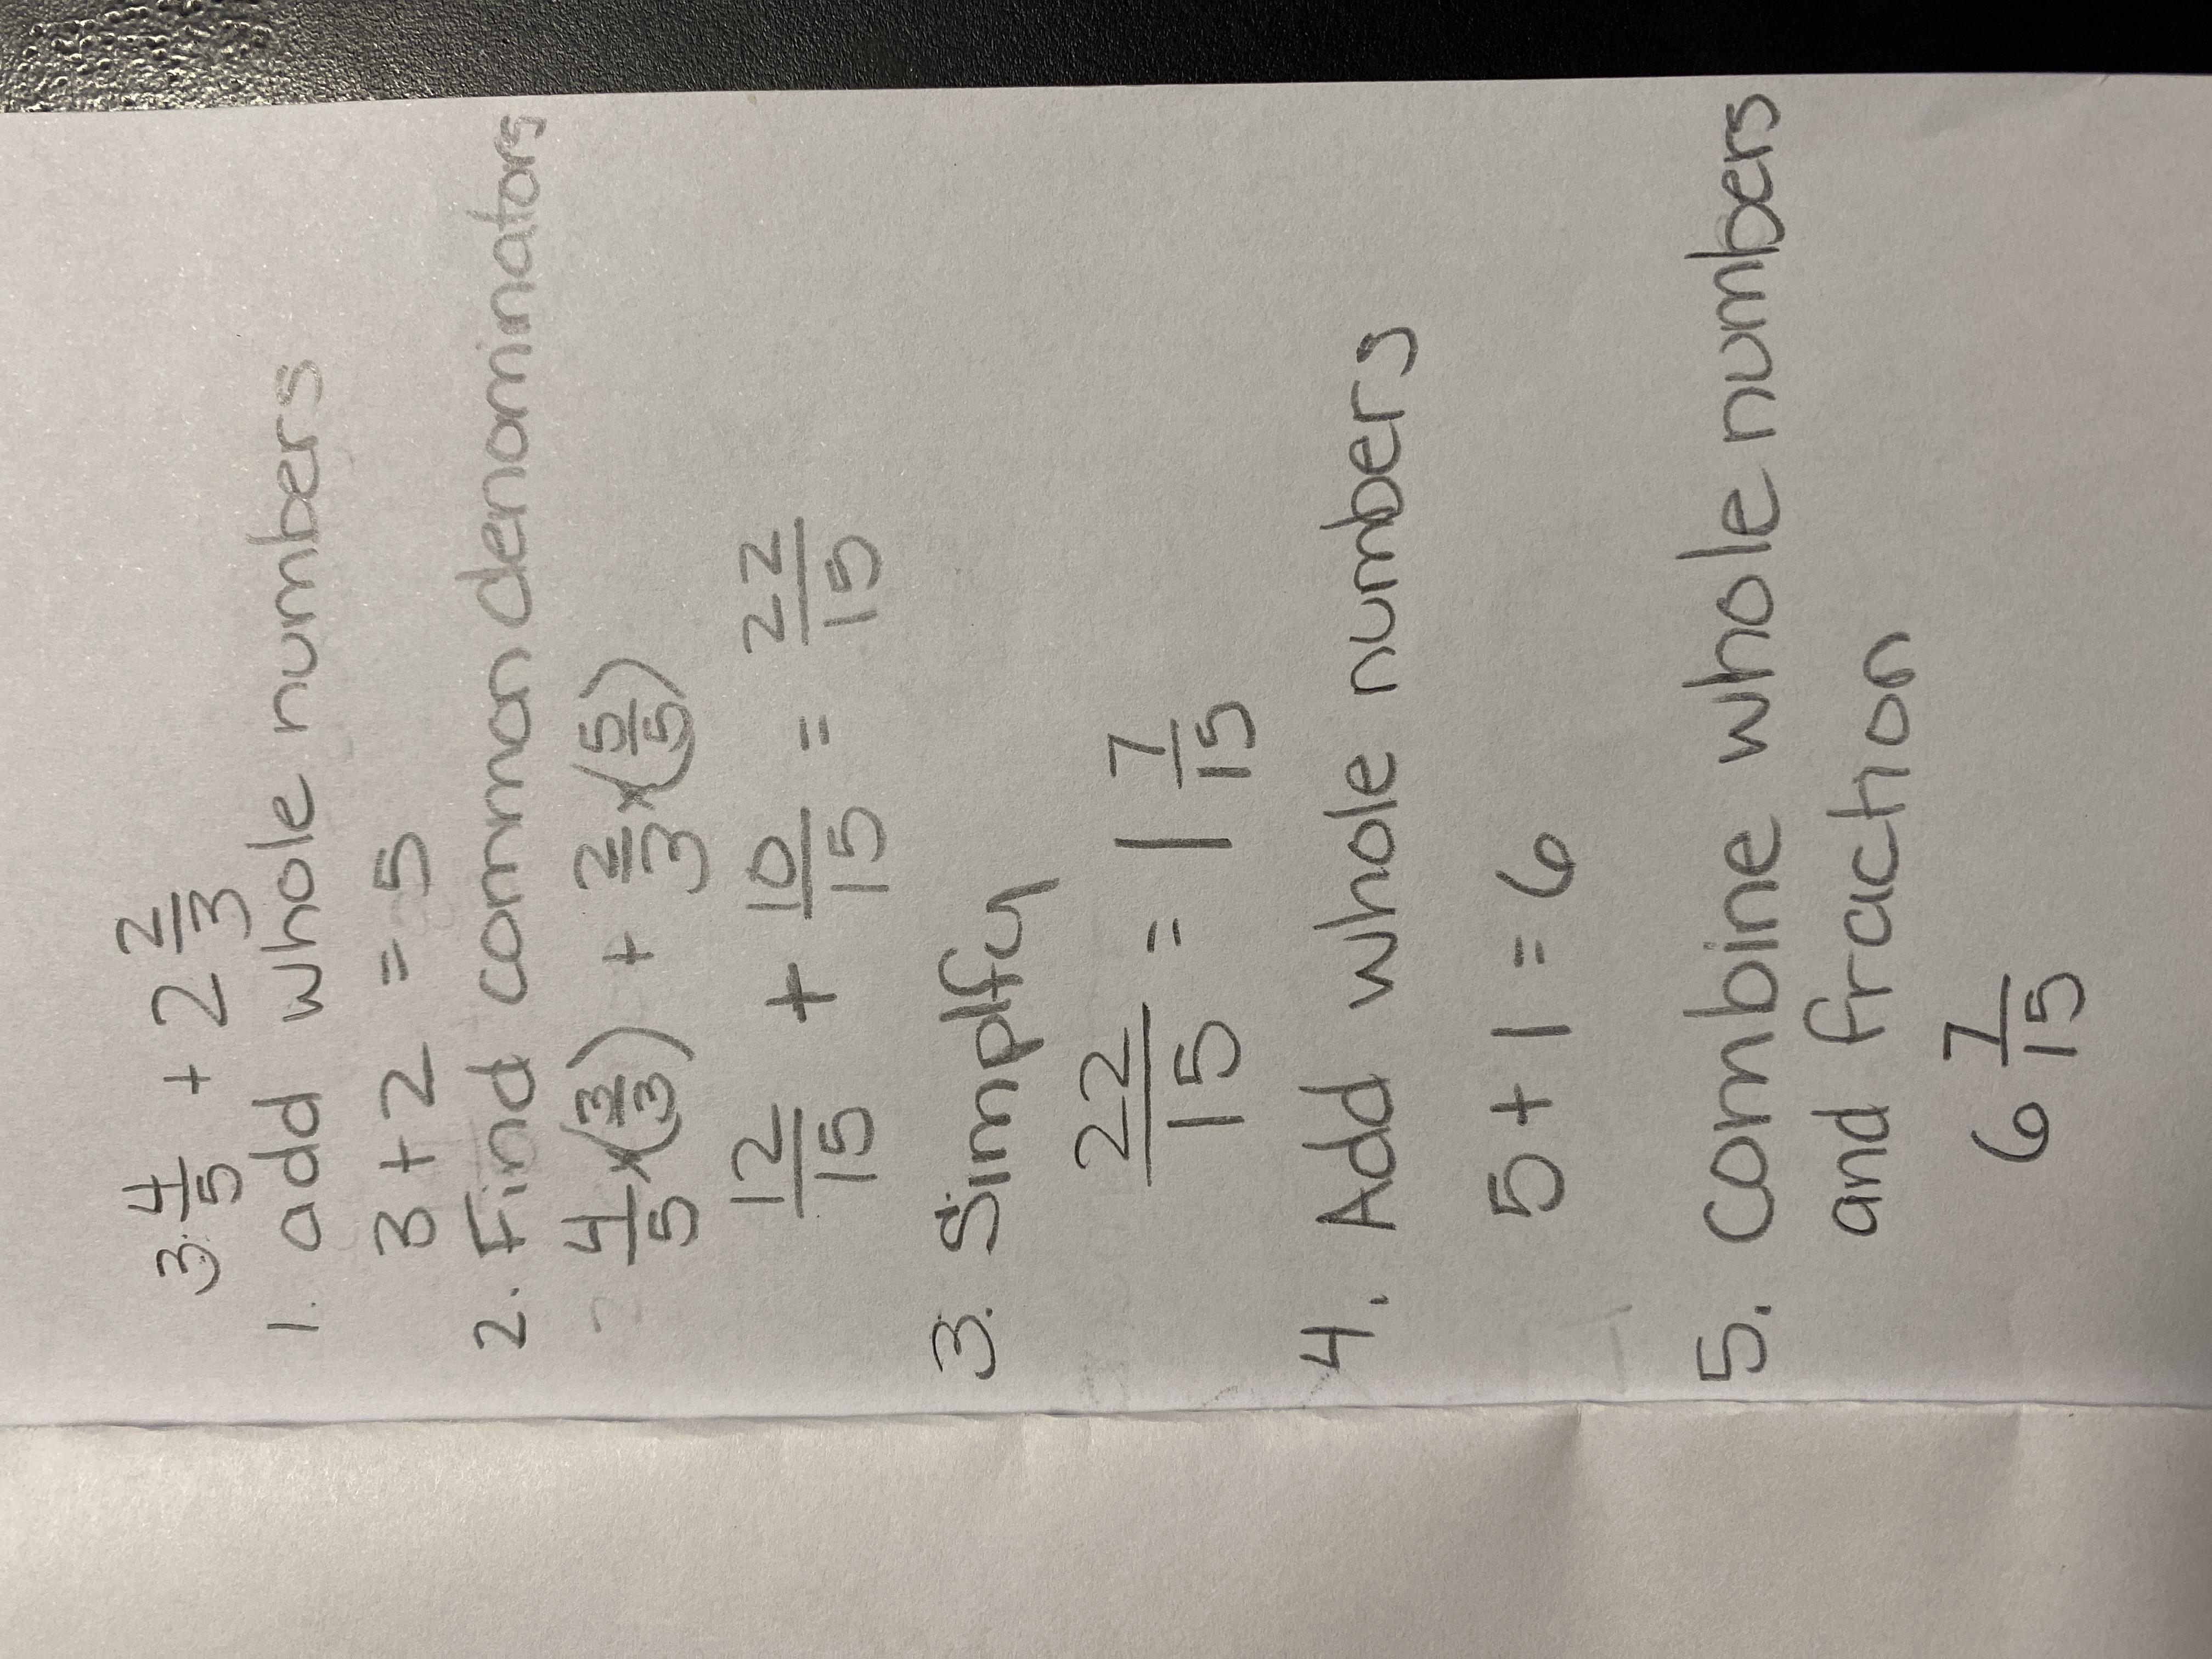 3 4/5 + 2 2/3
1. add whole numbers
3 + 2 = 5
2. Find common denominators
4/5 x (3/3) + 2/3 x (5/5)
12/15 + 10/15 = 22/15
3. Simplfy
22/15 = 1 7/15
4. Add whole numbers
5 + 1 = 6
5. Combine whole numbers
and fraction
6 7/15